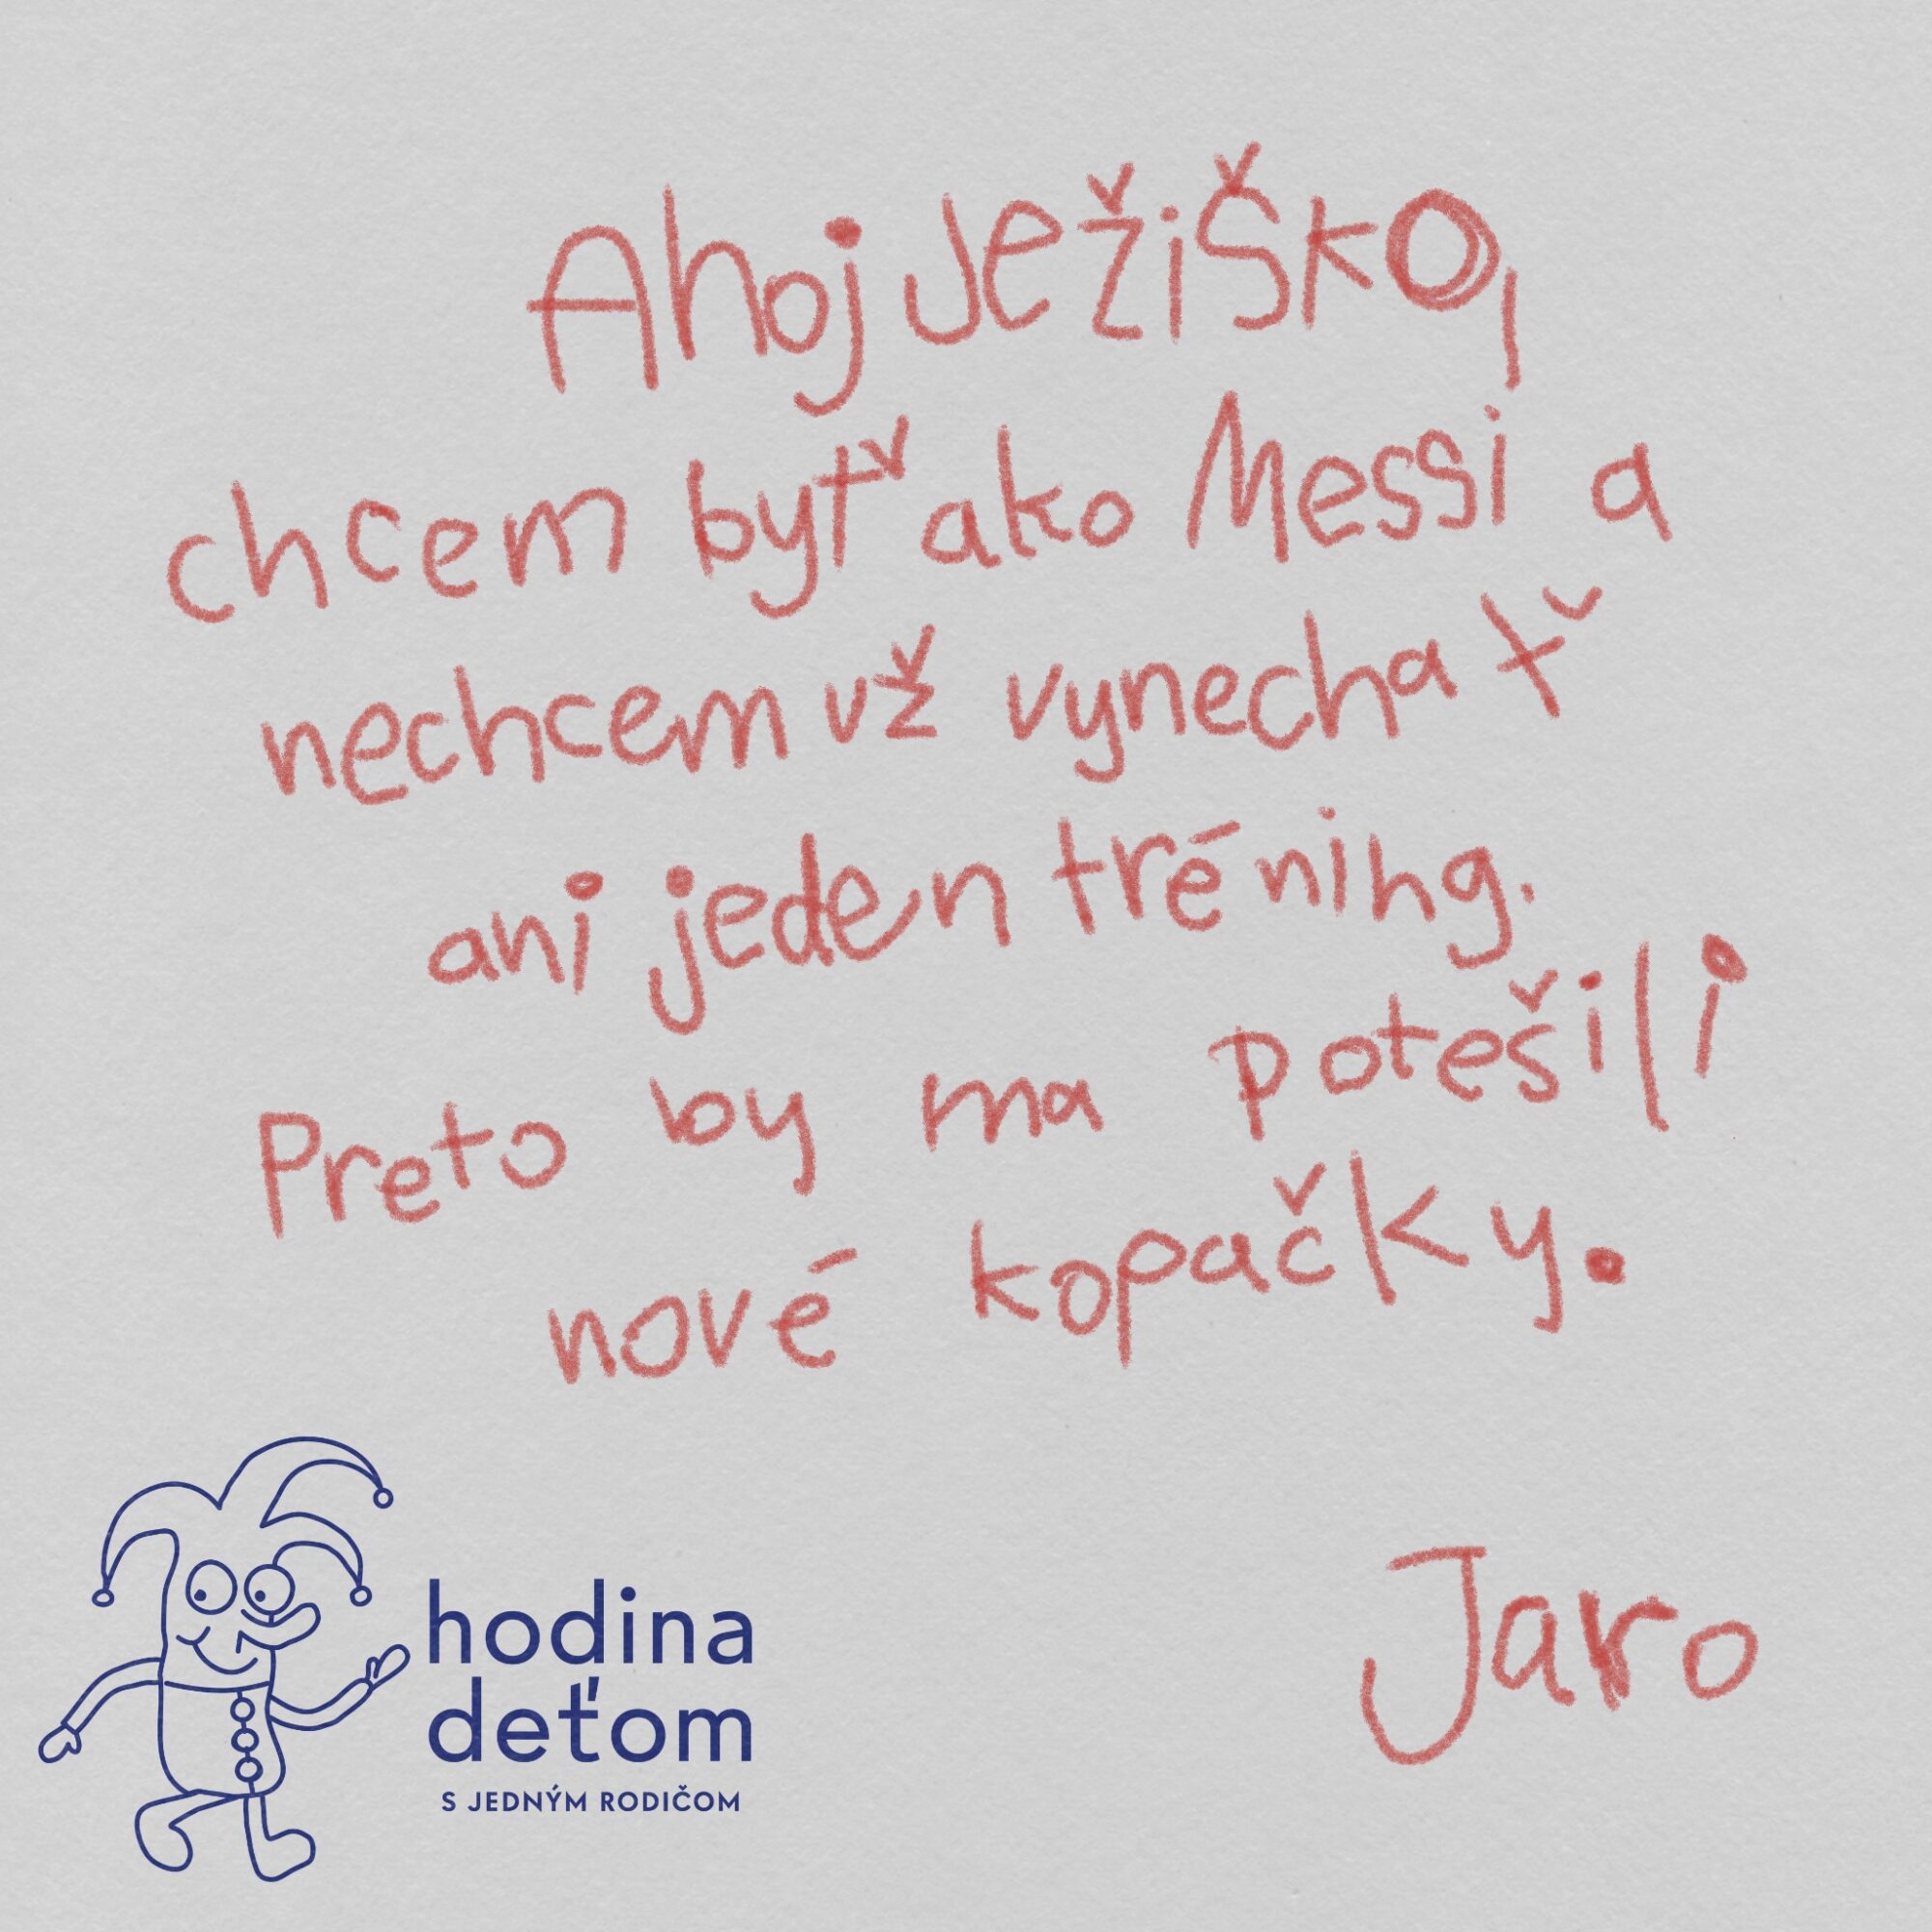 Ahoj Ježiško,
chcem byť ako Messi a
nechcem už vynechať
ani jeden tréning.
Preto by ma potešili
nové kopačky.
Jaro
hodina
deťom
S JEDNÝM RODIČOM